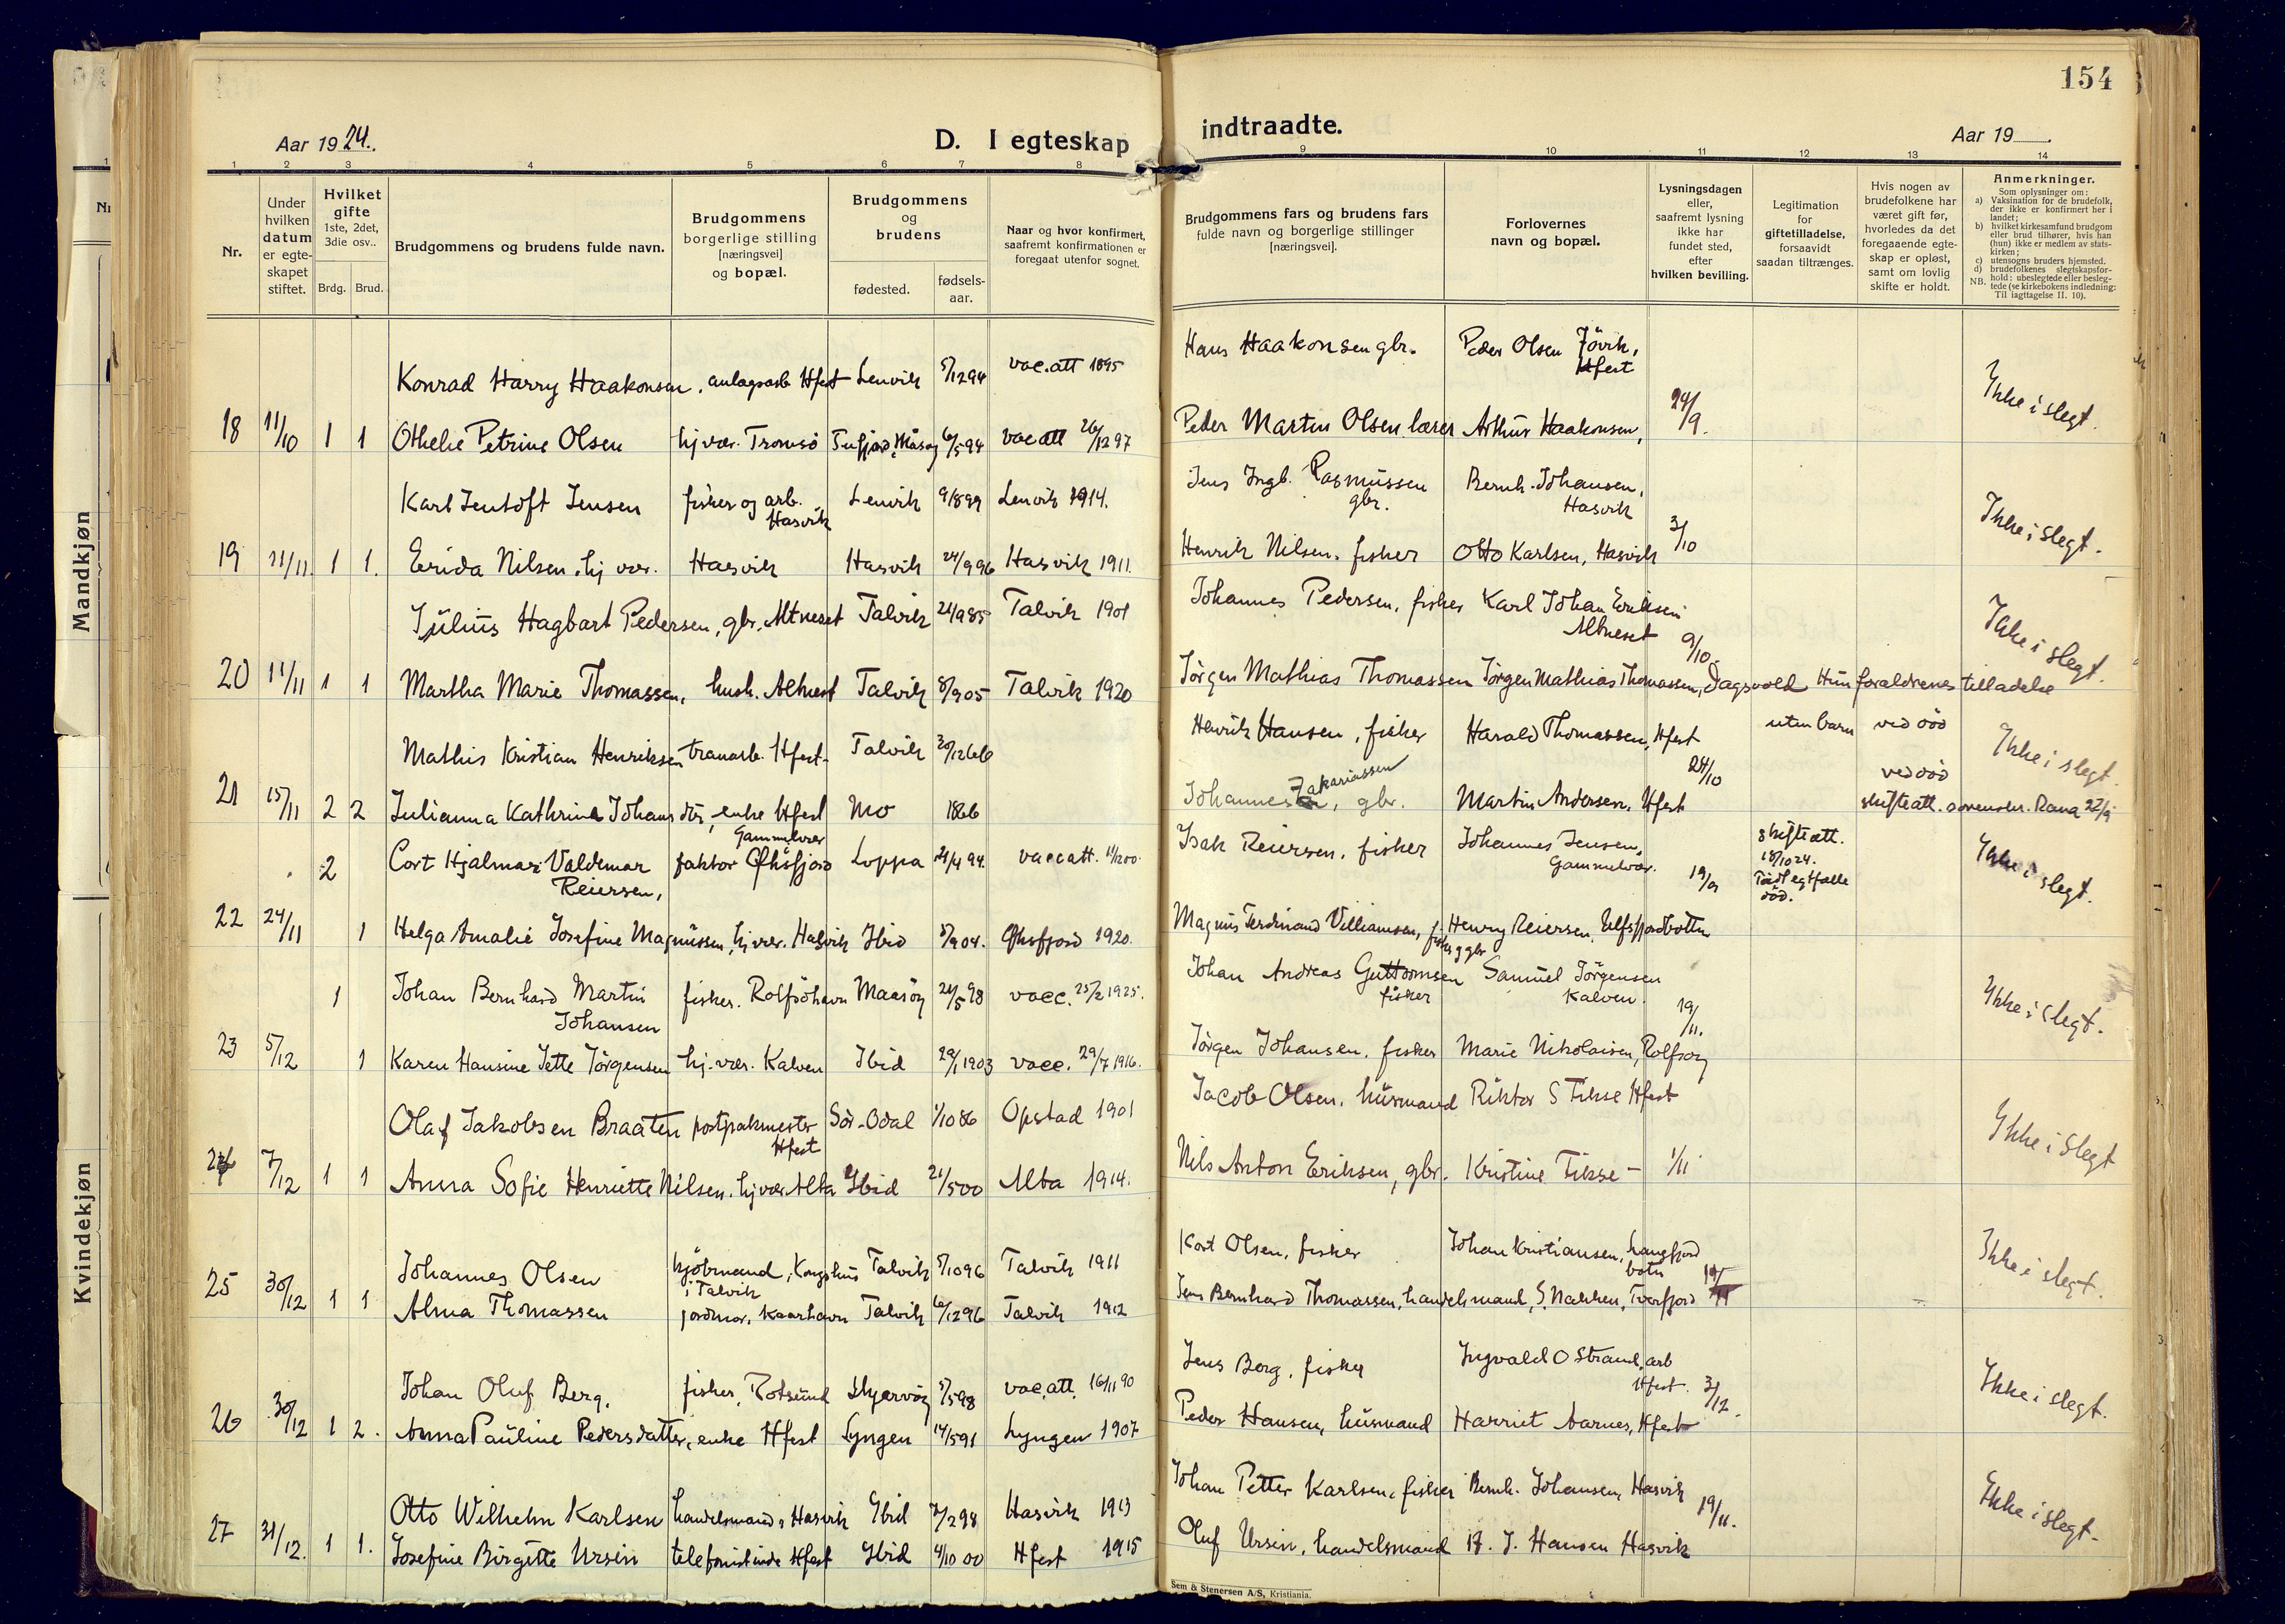 154
Aar 1924.
D. I egteskap
indtraadte.
Aar 19
1 2 3 4 5 6 7 8 9 10 11 12 13 14
Nr.
Under hvilken datum er egteskapet stiftet.
Hvilket gifte 1ste, 2det, 3die osv..
Brdg. Brud.
Brudgommens og brudens fulde navn.
Brudgommens borgerlige stilling [næringsvei] og bopæl.
Brudgommens og brudens
fødested.
fødsels-aar.
Naar og hvor konfirmert, saafremt konfirmationen er foregaat utenfor sognet.
Brudgommens fars og brudens fars fulde navn og borgerlige stillinger [næringsvei].
Forlovernes navn og bopæl.
Lysningsdagen eller, saafremt lysning ikke har fundet sted, efter hvilken bevilling.
Legitimation for giftetilladelse, forsaavidt saadan tiltrænges.
Hvis nogen av brudefolkene har været gift før, hvorledes da det foregaaende egteskap er opløst, samt om lovlig skifte er holdt.
Anmerkninger.
Som oplysninger om:
a) Vaksination for de brudefolk, der ikke er konfirmert her i landet;
b) hvilket kirkesamfund brudgom eller brud tilhører, hvis han (hun) ikke er medlem av statskirken;
c) utensogns bruders hjemsted.
d) brudefolkenes slegtskapsforhold: ubeslegtede eller beslegtede (se kirkebokens indledning: NB. Til iagttagelse II. 10).
Konrad Harry Haakonsen, anlagsarb Hfest Lenvik 5/12 94 vac.att 1895 Hans Haakonsen gbr. Peder Olsen Jövik, Hfest
18 11/10 1 1 Othelie Petrine Olsen hj vær. Tromsö Tufjord, Måsøy 6/5 94 vac att 26/12 97 Peder Martin Olsen lærer Arthur Haakonsen, 24/9. Ikke i slegt.
Karl Jentoft Jensen fisker og arb. Hasvik Lenvik 9/8 99 Lenvik 1914. Jens Ingb. Rasmussen gbr. Bernh. Johansen, Hasvik
19 21/11. 1 1. Erida Nilsen, hj vær. Hasvik Hasvik 24/9 96 Hasvik 1911. Henrik Nilsen, fisker Otto Karlsen, Hasvik 3/10 Ikke i slegt.
Julius Hagbart Pedersen, gbr. Altneset Talvik 24/9 85 Talvik 1901 Johannes Pedersen, fisker Karl Johan Eriksen Altneset
20 11/11 1 1 Martha Marie Thomassen, hush. Altnest Talvik 8/9 05 Talvik 1920 Jörgen Mathias Thomassen Jörgen Mathias Thomassen, Dagsvold 9/10. Hun foraldrenes tilladelse Ikke i slegt.
Mathis Kristian Henriksen tranarb. Hfest Talvik 30/12 66 Henrik Hansen, fisker Harald Thomassen, Hfest uten barn ved död
21 15/11 2 2 Julianna Kathrine Johansdtr, enke Hfest Mo 1866 Johannes Zakariassen, gbr. Martin Andersen, Hfest 24/10 ved död skifte att. sorenskr. Rana 22/9 Ikke i slegt.
2 Cort Hjalmar Valdemar Reiersen, faktor Gammelvær Öksfjord Loppa 21/4 94. vacc att. 11/12 00. Isak Reiersen, fisker Johannes Jensen, Gammelvær. 19/9 skifte att. 18/10 24. död. Ikke i slegt.
22 24/11 1 Helga Amalie Josefine Magnussen, hj vær. Hasvik Ibid 5/9 04. Öksfjord 1920. Magnus Ferdinand Villiamsen, fisker g gbr Henry Reiersen, Ulfsfjordbotten
1 Johan Bernhard Martin Johansen fisker. Rolfsöhavn Maasöy 21/5 98 vacc. 25/2 1925. Johan Andreas Guttormsen fisker Samuel Jörgensen Kalven.
23 5/12 1 Karen Hansine Jette Jörgensen hj. vær. Kalven Ibid 29/1 1903 vacc. 29/7 1916. Jörgen Johansen, fisker Marie Nikolaisen, Rolfsöy 19/11. Ikke i slegt.
Olaf Jakobsen Braaten postpakmester Hfest Sör-Odal 1/10 86 Opstad 1901 Jacob Olsen, husmand Riktor S Tikse Hfest
24 7/12 1 1 Anna Sofie Henriette Nilsen, hj vær. Alta Ibid 21/5 00 Alta 1914. Nils Anton Eriksen, gbr. Kristine Tikse – 1/11 Ikke i Slegt
Johannes Olsen kjöbmand, Kongshus i Talvik Talvik 5/10 96 Talvik 1911 Kort Olsen, fisker Johan Kristiansen, Langfjord botn
25 30/12 1 1 Alma Thomassen jordmor, Kaarhavn Talvik 6/12 96 Talvik 1912 Jens Bernhard Thomassen, handelsmand, S. Nakken, Tverfjord Ikke i slegt.
Johan Oluf Berg, fisker, Rotsund Skjervöy 5/5 98 vac. att. 16/11 90 Jens Berg, fisker Ingvald O Strand, arb Hfest.
26 30/12 1 2. Anna Pauline Pedersdatter, enke Hfest Lyngen 14/5 91 Lyngen 1907 Peder Hansen, husmand Harriet Aarnes, Hfest 3/12. Ikke i slegt.
Otto Wilhelm Karlsen handelsmand, Hasvik Ibid 7/2 98 Hasvik 1913 Johan Petter Karlsen, fisker Bernh. Johansen, Hasvik
27 31/12. 1 1. Josefine Birgitte Ursin telefonistinde Hfest Ibid 4/10 00 Hfest 1915 Oluf Ursin, handelsmand H. J. Hansen Hasvik 19/11. Ikke i slegt.
Sem & Stenersen A/S, Kristiania.
Mandkjøn
Kvindekjøn